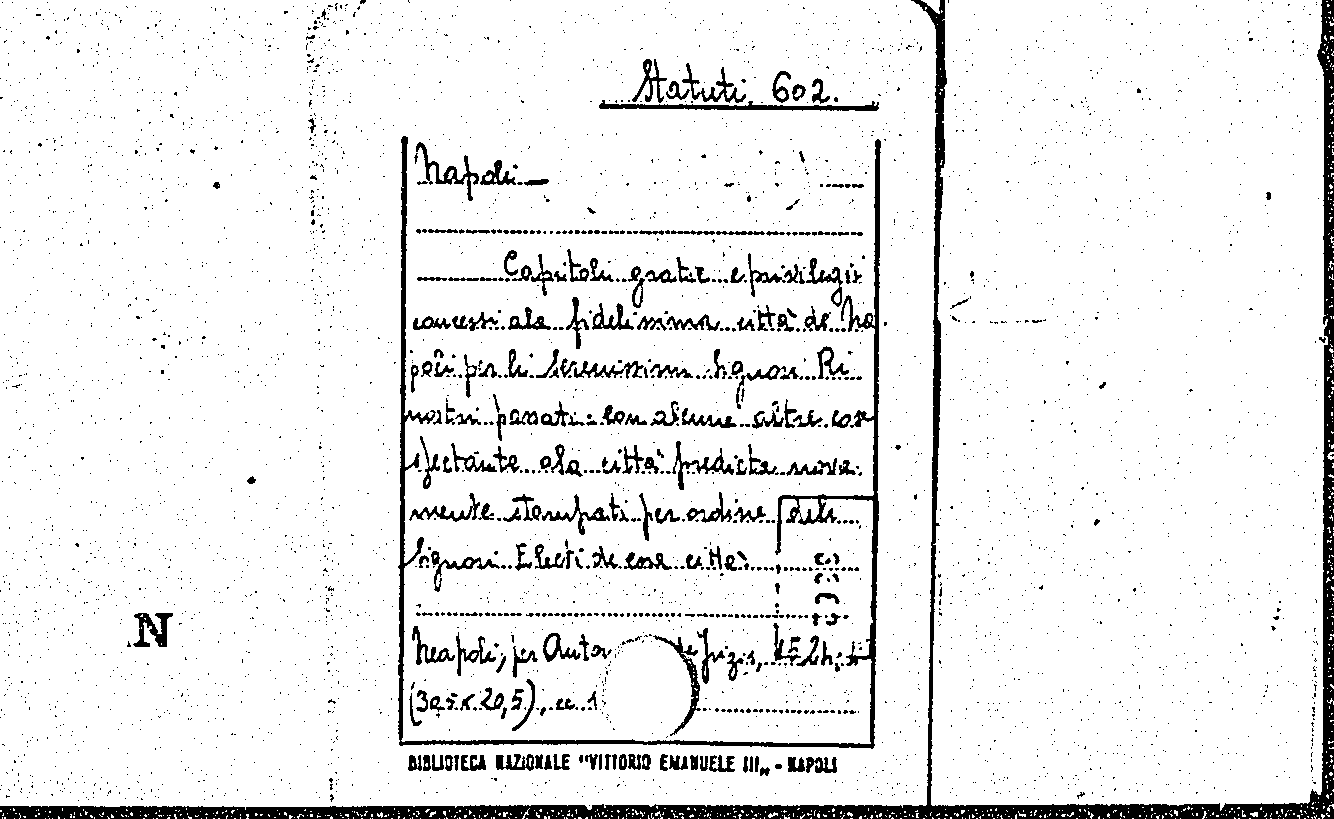 Statuti. 602.
Napoli
Capitoli gratie e privilegii
concessi ala fidelissima città de Na
poli per li Serenissimi Signori Ri
nostri passati: con alcune altre cose
spectante ala città predicta nova
mente stampati per ordine deli
Signori Electi de essa città.
Neapoli, per Anto de Frizis,
(30,5 x 20,5), cc 1
N
BIBLIOTECA NAZIONALE "VITTORIO EMANUELE III„ - NAPOLI